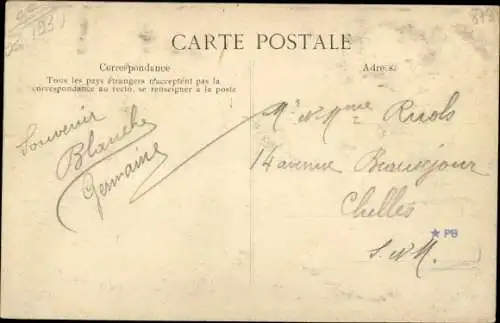 CARTE POSTALE
Correspondance
Tous les pays étrangers n'acceptent pas la
correspondance au recto, se renseigner à la poste
Adresse
Souvenir
Blanche
Germaine
Mr & Mme Ruols
14 avenue Beauséjour
Chelles
S. & M.
★ PB